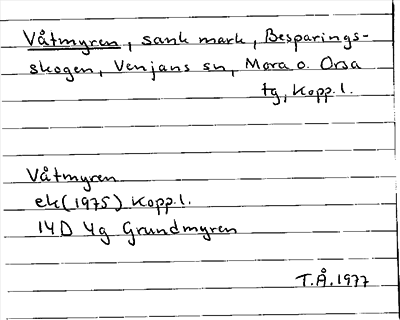 Våtmyren, sank mark, Besparings-
skogen, Venjans sn, Mora o. Orsa
tg, Kopp.l.
Våtmyren
ek(1975) Kopp.l.
14D 4g Grundmyren
T.Å.1977